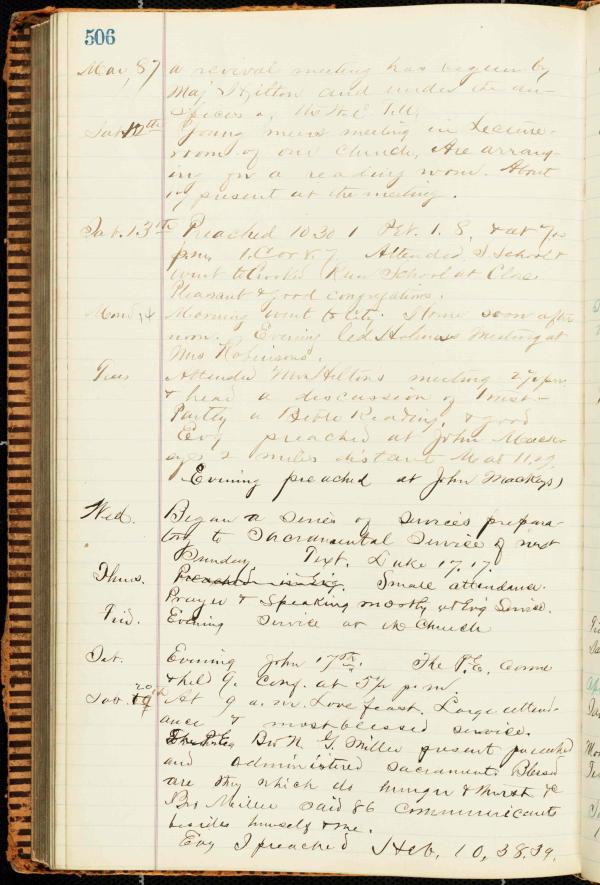 506
Mar, 87 a revival meeting has begun by
Maj Hilton and under the au-
spices of the
Sat. 12th Young mens meeting in Lecture-
room of our church, Are arrang-
ing for a reading room. About
17 present at the meeting.
Sab. 13th Preached 10 30 1 Pet. 1. 8. & at 7 30
p.m. 1. Cor 8. 9 Attended S School &
went to Crooked Run School at Close
Pleasant & good congregations.
Mond 14 Morning went to City. Home soon after
noon. Evening led Holiness Meeting at
Mrs Robinsons.
Tues Attended Mr Hiltons meeting 2 ½ p.m.
& head a discussion of
Partly a Bible Reading, & good
Evg preached at John
2 miles distant Mat 11.29.
(Evening preached at John Mackeys)
Wed. Began a series of services prepara-
tory to Sacramental Service of next
Sunday Text. Luke 17.17.
Thurs. Preached in Evg. Small attendance.
Prayer & speaking mostly at Evg Service.
Frid. Evening service at the Church
Sat. Evening John 17th. The P.E. come
& held Q. Conf. at 5 ½ p.m.
Sab. 19 20th At 9 a.m. Love feast. Large attend-
ance & most blessed service.
The P.E. Bro N. G. Miller present preached
and administered sacraments Blessed
are they which do hunger & thirst &c
Bro Miller said 86 communicants
besides himself & me.
Evg I preached Heb. 10, 38.39.